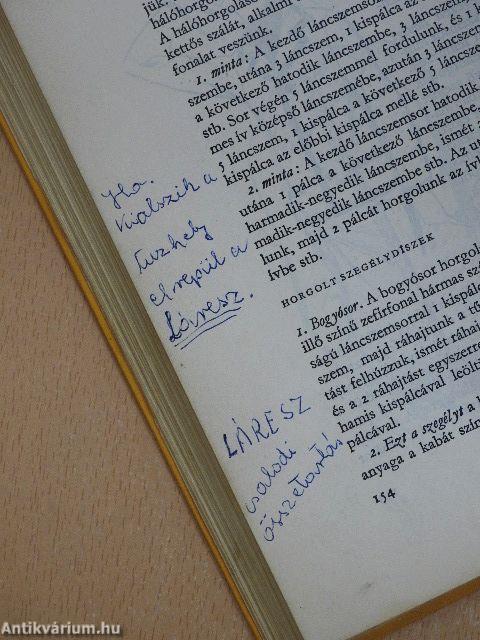 jük.
hálóhorgolá
A hálóhorgolás
kettős szálát, alkalmi
fonalat veszünk.
1. minta: A kezdő láncszemsor
szembe, utána 3 láncszem, 1 kispálca az
a következő hatodik láncszembe, 3 láncszem,
stb. Sor végén 5 láncszemmel fordulunk, és 1
mes ív középső láncszemébe, azután 3 láncszem
5 láncszem, 1 kispálca a következő 5 láncszem
kispálca az előbbi kispálca mellé stb.
2. minta: A kezdő láncszemsor hatodik
utána 1 pálca a következő láncszembe,
harmadik-negyedik láncszembe, ismét 2
madik-negyedik láncszembe stb. Az ut
lunk, majd 2 pálcát horgolunk az ívb
ívbe stb.
HORGOLT SZEGÉLYDÍSZEK
1. Bogyósor. A bogyósor horgol
illő színű zefírfonal hármas szá
ságú láncszemsorral 1 kispálc
szem, majd ráhajtunk a tű
tást felhúzzuk, ismét ráha
és a 2 ráhajtást egyszerre
hamis kispálcával leölt
pálcával.
2. Ezt a szegélyt a
anyaga a kabát szín
154
Ha
kialszik a
tűzhely
elrepül a
Láresz.
LÁRESZ
családi
összetartás
Antikvárium.hu